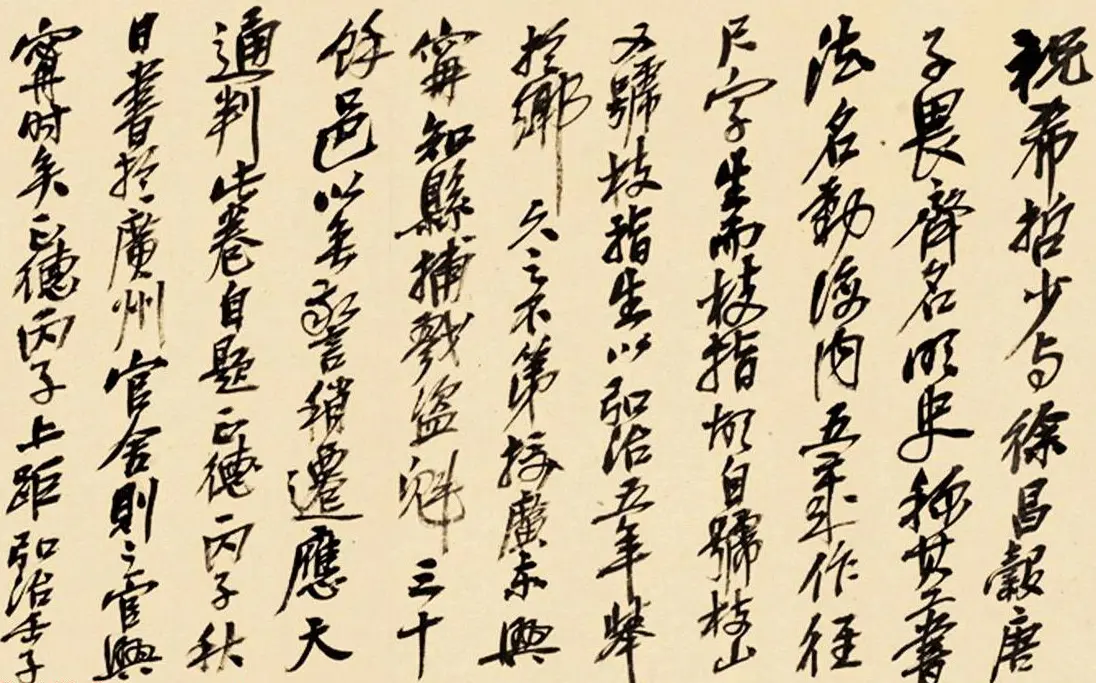 祝希哲少与徐昌穀唐
子畏齊名明史称其工書
法名動海内五年作径
尺字生而枝指故自號枝山
又號枝指生以弘治五年舉
於鄉久之不第授廣東興
寧知縣捕戮盜魁三十
餘邑以無警稍遷應天
通判此卷自題正德丙子秋
日書於廣州官舍則之官興
寧時矣正德丙子上距弘治壬子